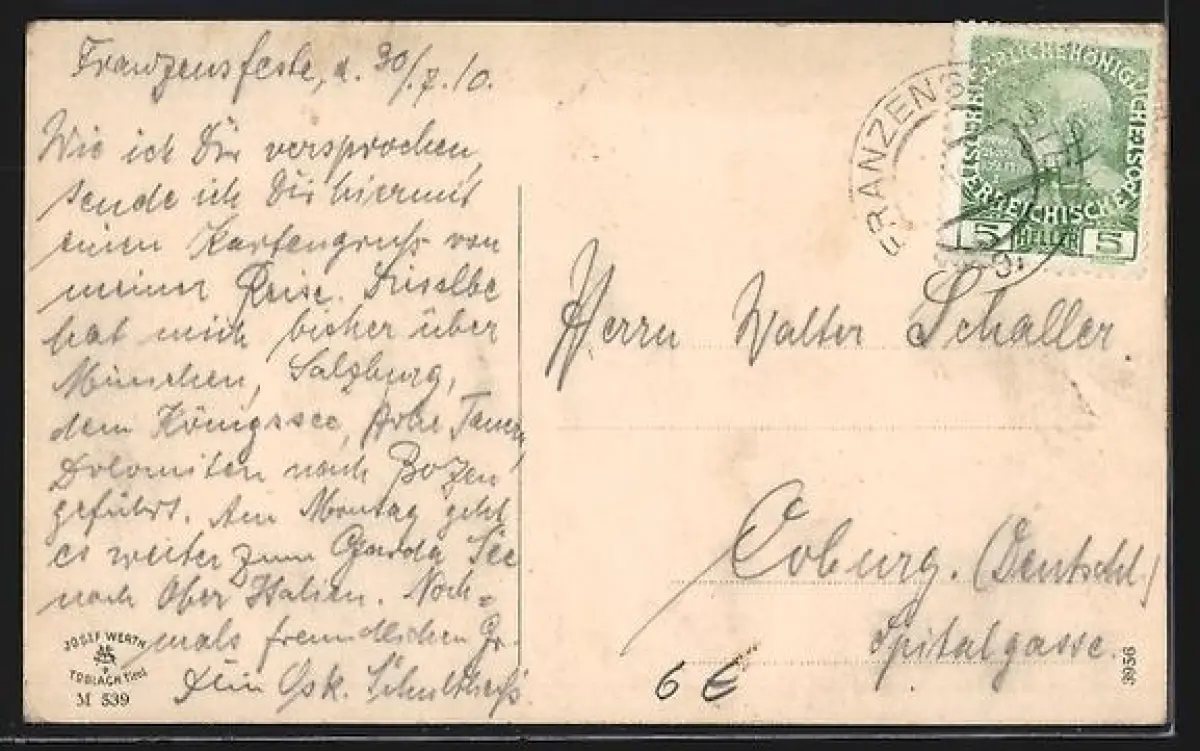 Franzensfeste, d. 30/.7.10.
Wie ich Dir versprochen,
sende ich Dir hiermit
einen Kartengruß von
meiner Reise. Dieselbe
hat mich bisher über
München, Salzburg,
dem Königssee, Hohe Tauern,
Dolomiten nach Bozen
geführt. Am Montag geht
es weiter zum Garda See
nach Ober Italien. Noch=
mals freundlichen Gr.
Dein Osk. Schultheiß
JOSEF WERTH
TOBLACH Tirol
M 539
FRANZENSFESTE
KAISERLICHE KÖNIGLICHE ÖSTERREICHISCHE POST
5 HELLER 5
Herrn Walter Schaller.
Coburg. (Deutschl.)
Spitalgasse.
6 €
3956